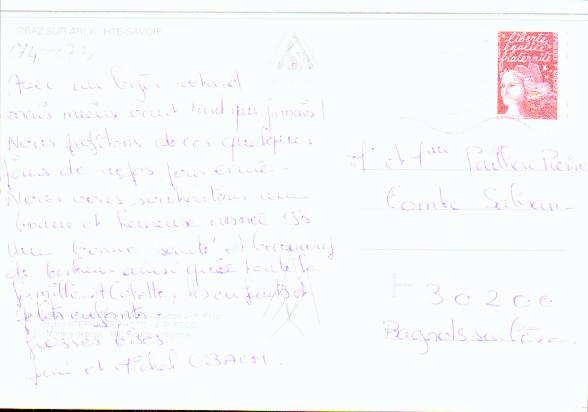 PRAZ SUR ARLY HTE-SAVOIE
Avec un léger retard
mais mieux vaut tard que jamais !
Nous profitons de ces quelques
jours de repos pour
Nous vous souhaitons une
bonne et heureuse année 98
une bonne santé et beaucoup
de bonheur ainsi qu'à toute la
famille, les enfants et
petits enfants.
grosses bises
et Michel UBACH.
liberté
égalité
fraternité
M et Mme Pierre
Combe
30200
Bagnols sur Cèze